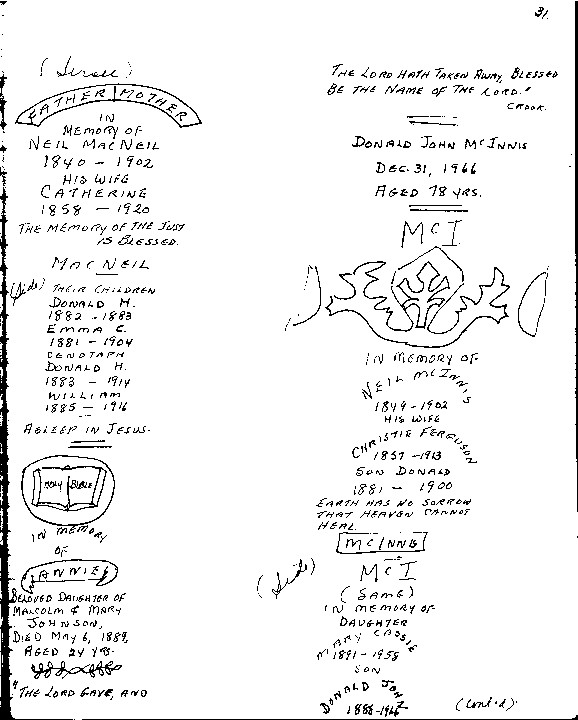 31.
(Scroll)
FATHER MOTHER
IN
MEMORY OF
NEIL MACNEIL
1840 - 1902
HIS WIFE
CATHERINE
1858 - 1920
THE MEMORY OF THE JUST
IS BLESSED.
MACNEIL
(Side) THEIR CHILDREN
DONALD H.
1882 - 1883
EMMA C.
1881 - 1904
CENOTAPH
DONALD H.
1883 - 1914
WILLIAM
1885 - 1916
ASLEEP IN JESUS.
HOLY BIBLE
IN MEMORY
OF
ANNIE
BELOVED DAUGHTER OF
MALCOLM & MARY
JOHNSON,
DIED MAY 6, 1889,
AGED 24 YRS.
"THE LORD GAVE, AND
THE LORD HATH TAKEN AWAY, BLESSED
BE THE NAME OF THE LORD."
CROOK.
DONALD JOHN MCINNIS
DEC. 31, 1966
AGED 78 YRS.
MCI
IN MEMORY OF
NEIL MCINNIS
1849 - 1902
HIS WIFE
CHRISTIE FERGUSON
1857 - 1913
SON DONALD
1881 - 1900
EARTH HAS NO SORROW
THAT HEAVEN CANNOT
HEAL.
MCINNIS
(Side)
MCI
(SAME)
IN MEMORY OF
DAUGHTER
MARY CASSIE
1891 - 1958
SON
DONALD JOHN
1888 - 1966
(Cont'd)